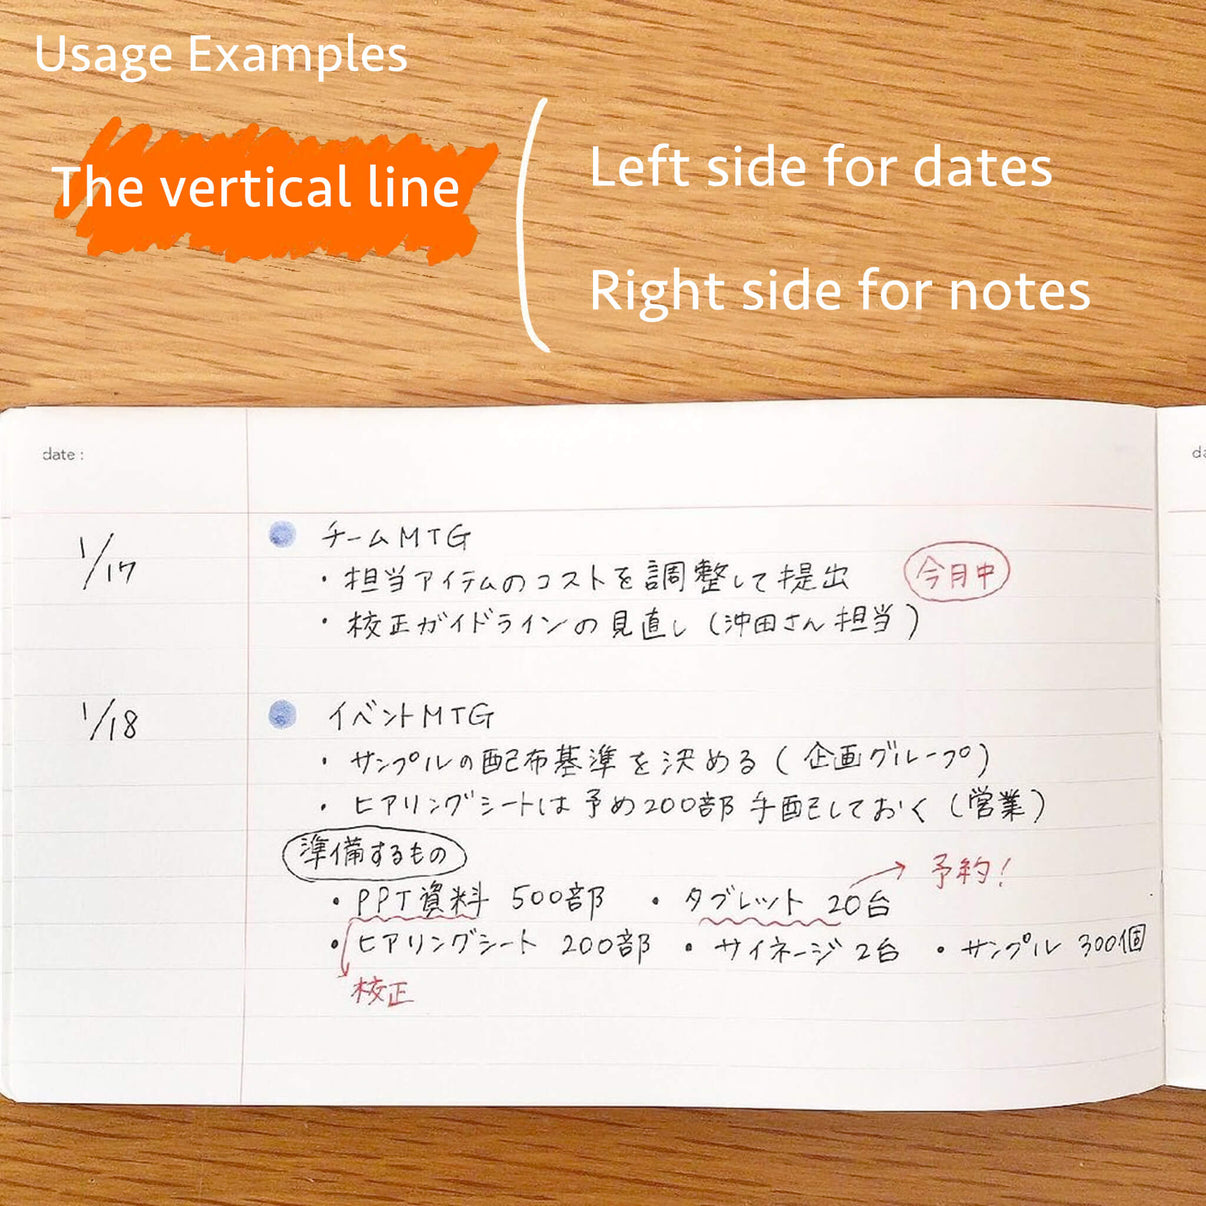 Usage Examples
The vertical line
Left side for dates
Right side for notes
date :
1/17
チームMTG
・担当アイテムのコストを調整して提出 今月中
・校正ガイドラインの見直し(沖田さん担当)
1/18
イベントMTG
・サンプルの配布基準を決める(企画グループ)
・ヒアリングシートは予め200部手配しておく(営業)
準備するもの
予約!
・PPT資料 500部 ・タブレット 20台
・ヒアリングシート 200部 ・サイネージ 2台 ・サンプル 300個
校正